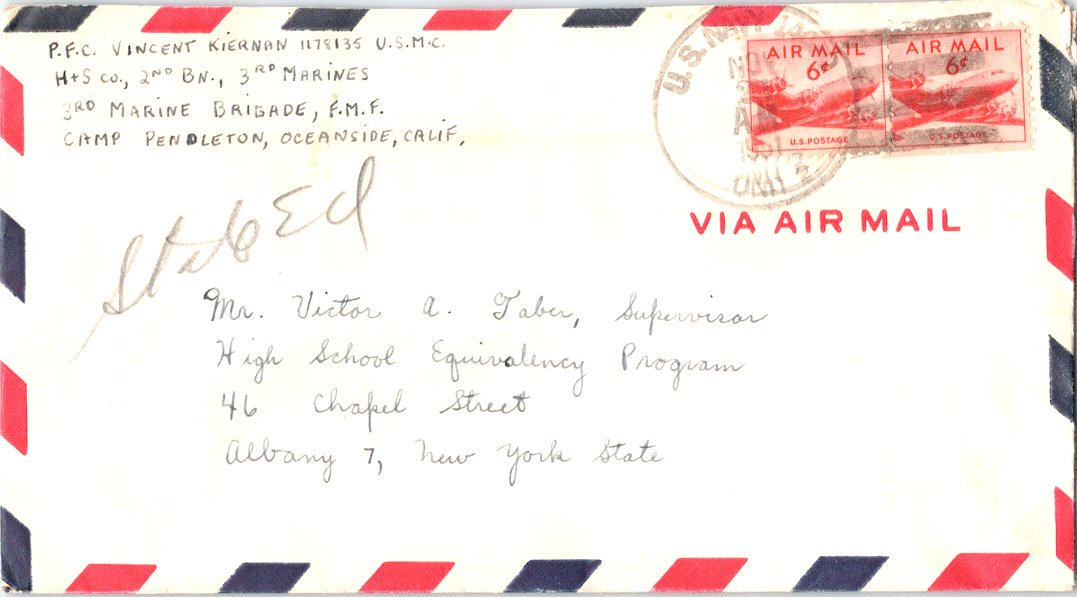 P.F.C. VINCENT KIERNAN 1178135 U.S.M.C.
H+S CO., 2ND BN., 3RD MARINES
3RD MARINE BRIGADE, F.M.F.
CAMP PENDLETON, OCEANSIDE, CALIF.
U.S. NAVY
NOV
AM
UNIT 2
AIR MAIL
6¢
U.S. POSTAGE
AIR MAIL
6¢
U.S. POSTAGE
VIA AIR MAIL
Ed
Mr. Victor A. Taber, Supervisor
High School Equivalency Program
46 Chapel Street
Albany 7, New York State